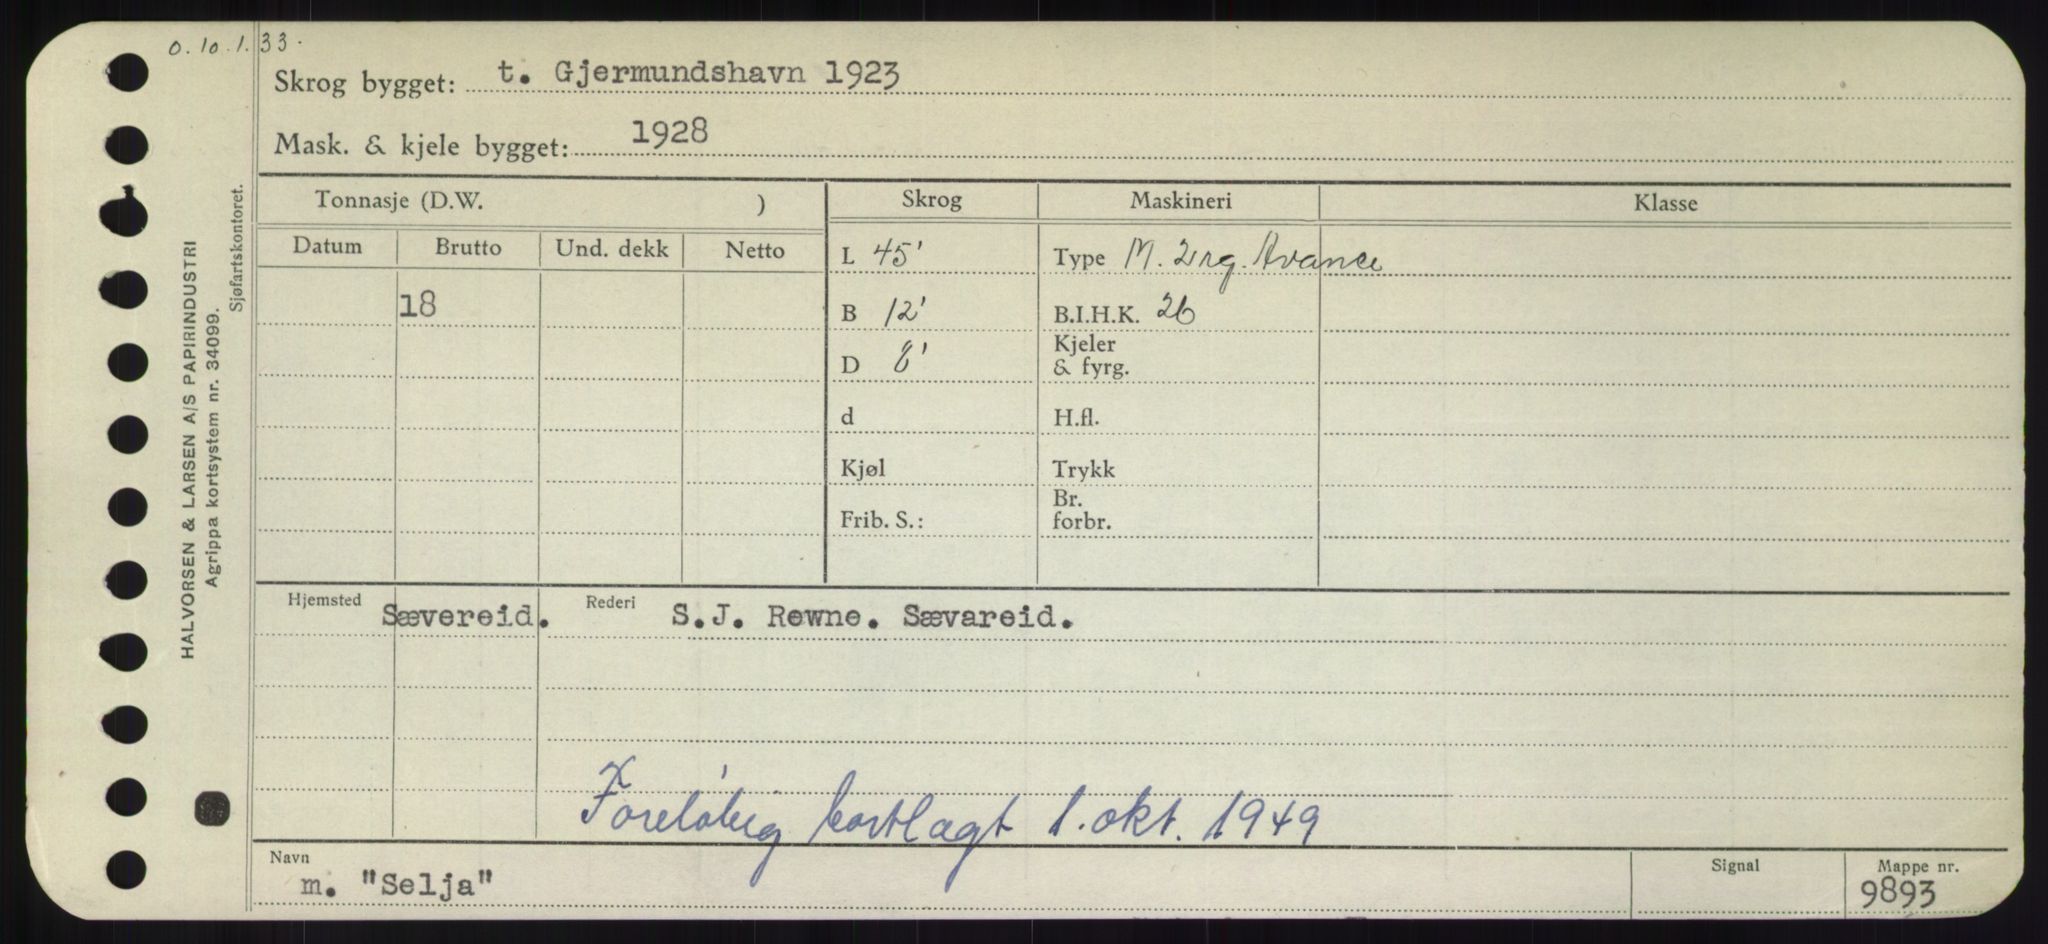 0.10.1.33.
Skrog bygget: t. Gjermundshavn 1923
Mask. & kjele bygget: 1928
Tonnasje (D.W. ) Skrog Maskineri Klasse
Datum Brutto Und. dekk Netto L 45' Type M. 2 rg. Avance
18 B 12' B.I.H.K. 26
D 8' Kjeler & fyrg.
d H.fl.
Kjøl Trykk
Frib. S.: Br. forbr.
Hjemsted Sævereid. Rederi S.J. Rewne. Sævareid.
Foreløbig bortlagt 1. okt. 1949
Navn m. "Selja" Signal Mappe nr. 9893
HALVORSEN & LARSEN A/S PAPIRINDUSTRI
Agrippa kortsystem nr. 34099.
Sjøfartskontoret.